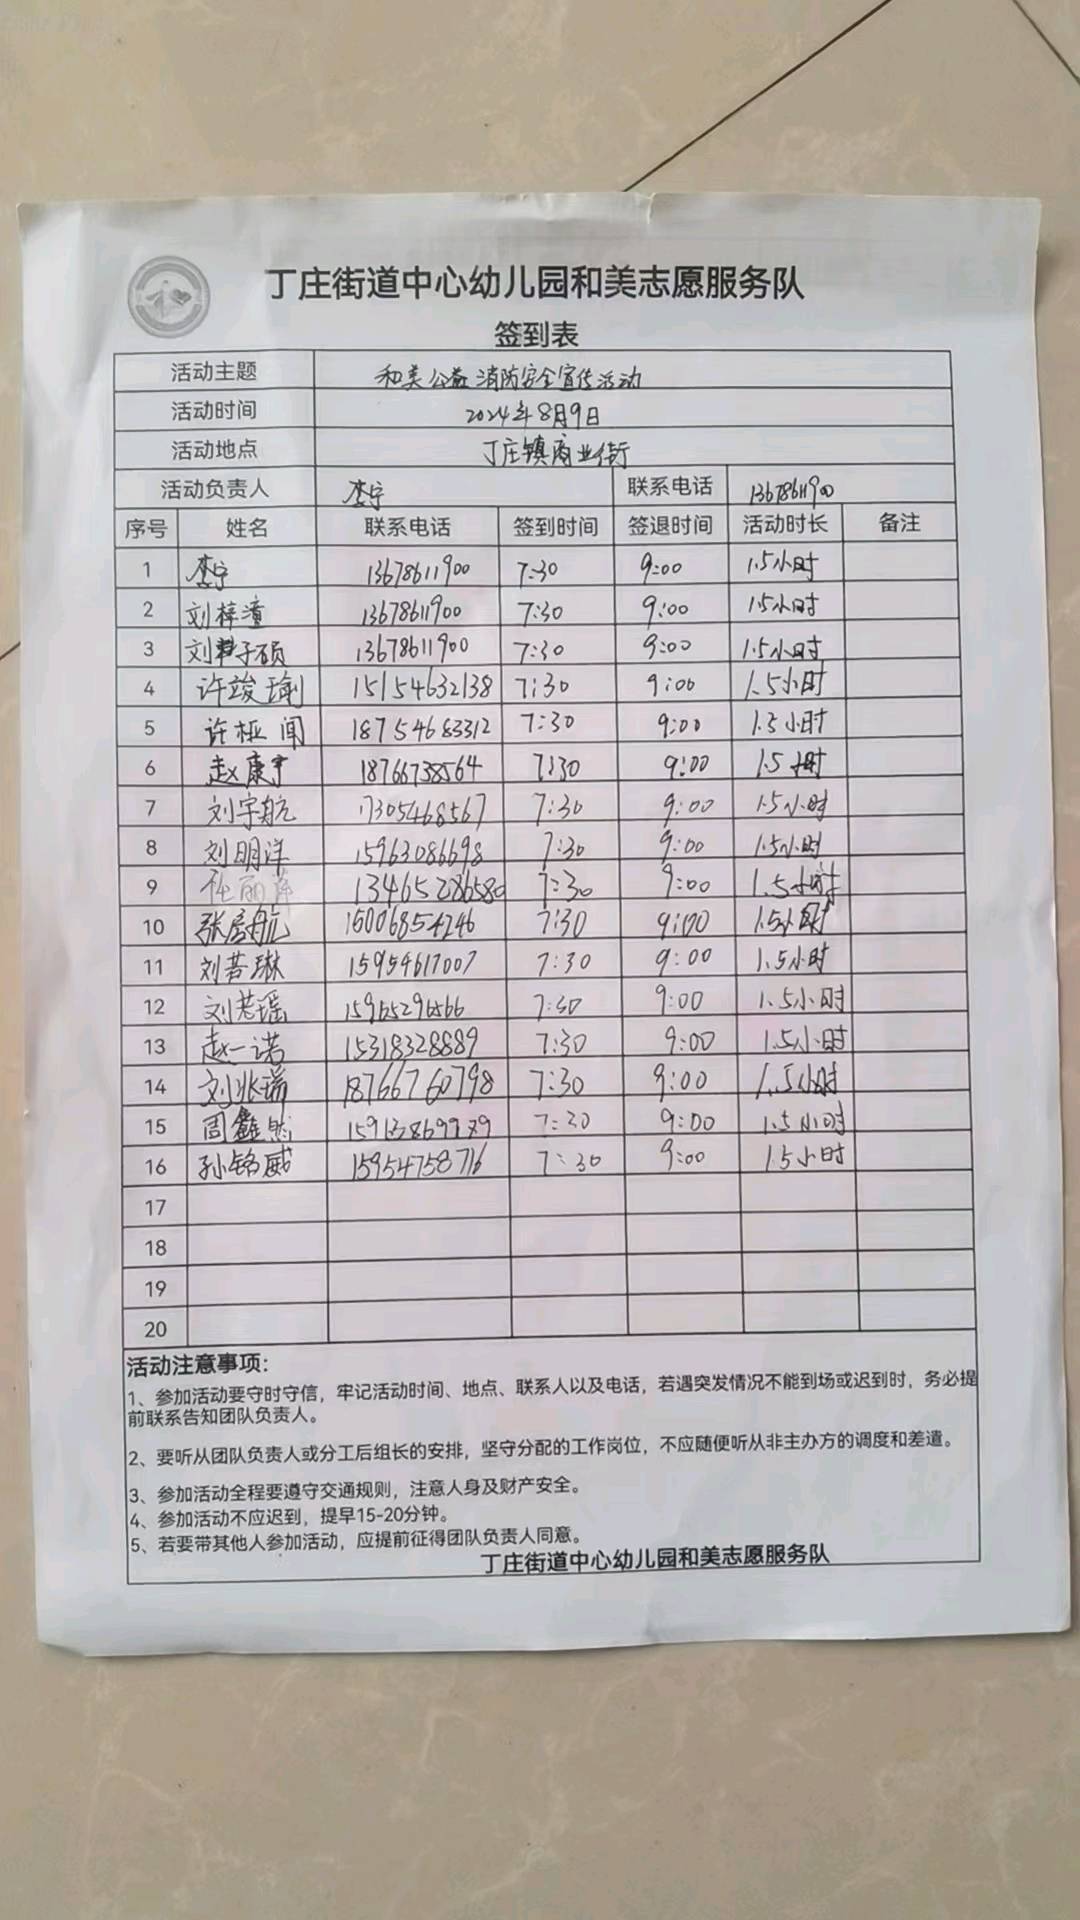 丁庄街道中心幼儿园和美志愿服务队
签到表
活动主题 和美公益消防安全宣传活动
活动时间 2024年8月9日
活动地点 丁庄镇商业街
活动负责人 李宁 联系电话 13678611900
序号 姓名 联系电话 签到时间 签退时间 活动时长 备注
1 李宁 13678611900 7:30 9:00 1.5小时
2 刘梓潼 13678611900 7:30 9:00 1.5小时
3 刘子硕 13678611900 7:30 9:00 1.5小时
4 许竣瑜 15154632138 7:30 9:00 1.5小时
5 许桠闻 18754683312 7:30 9:00 1.5小时
6 赵康宇 18766738564 7:30 9:00 1.5小时
7 刘宇航 17305468567 7:30 9:00 1.5小时
8 刘明洋 15963086698 7:30 9:00 1.5小时
9 任丽萍 13465286580 7:30 9:00 1.5小时
10 张彦航 15006854246 7:30 9:00 1.5小时
11 刘若琳 15954617007 7:30 9:00 1.5小时
12 刘若瑶 15965296566 7:30 9:00 1.5小时
13 赵一诺 15318328889 7:30 9:00 1.5小时
14 刘兆瑞 18766760798 7:30 9:00 1.5小时
15 周鑫然 7:30 9:00 1.5小时
16 孙铭威 15954758716 7:30 9:00 1.5小时
17
18
19
20
活动注意事项:
1、参加活动要守时守信，牢记活动时间、地点、联系人以及电话，若遇突发情况不能到场或迟到时，务必提
前联系告知团队负责人。
2、要听从团队负责人或分工后组长的安排，坚守分配的工作岗位，不应随便听从非主办方的调度和差遣。
3、参加活动全程要遵守交通规则，注意人身及财产安全。
4、参加活动不应迟到，提早15-20分钟。
5、若要带其他人参加活动，应提前征得团队负责人同意。
丁庄街道中心幼儿园和美志愿服务队